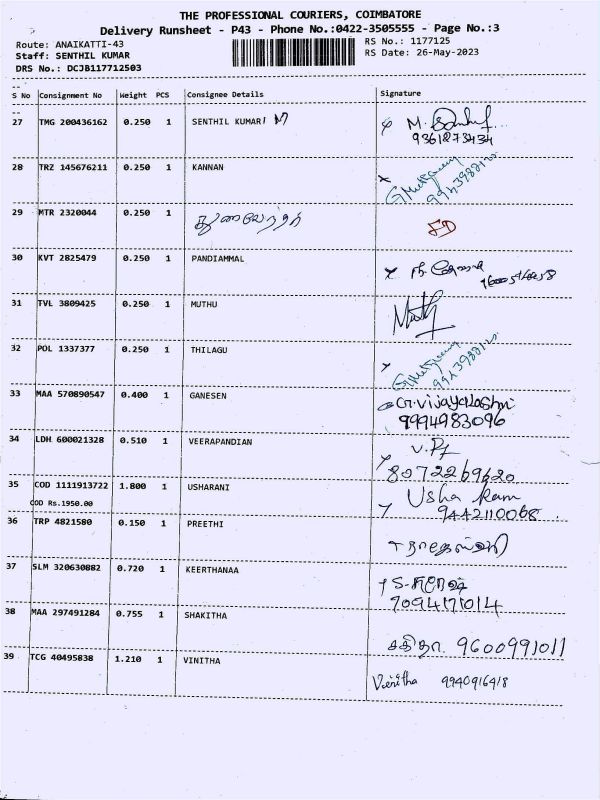 THE PROFESSIONAL COURIERS, COIMBATORE
Delivery Runsheet - P43 - Phone No.:0422-3505555 - Page No.:3
Route: ANAIKATTI-43
RS No.: 1177125
Staff: SENTHIL KUMAR
RS Date: 26-May-2023
DRS No.: DCJB117712503
S No Consignment No Weight PCS Consignee Details Signature
27 TMG 200436162 0.250 1 SENTHIL KUMAR M
9361273434
28 TRZ 145676211 0.250 1 KANNAN
29 MTR 2320044 0.250 1
30 KVT 2825479 0.250 1 PANDIAMMAL
31 TVL 3809425 0.250 1 MUTHU
32 POL 1337377 0.250 1 THILAGU
33 MAA 570890547 0.400 1 GANESEN G.Vijayalashmi
9994983096
34 LDH 600021328 0.510 1 VEERAPANDIAN
8072269620
35 COD 1111913722 1.800 1 USHARANI Usha Ram
COD Rs.1950.00 9442110068
36 TRP 4821580 0.150 1 PREETHI
37 SLM 320630882 0.720 1 KEERTHANAA
7094171014
38 MAA 297491284 0.755 1 SHAKITHA சகிதா 9600991011
39 TCG 40495838 1.210 1 VINITHA Vinitha 9940916418